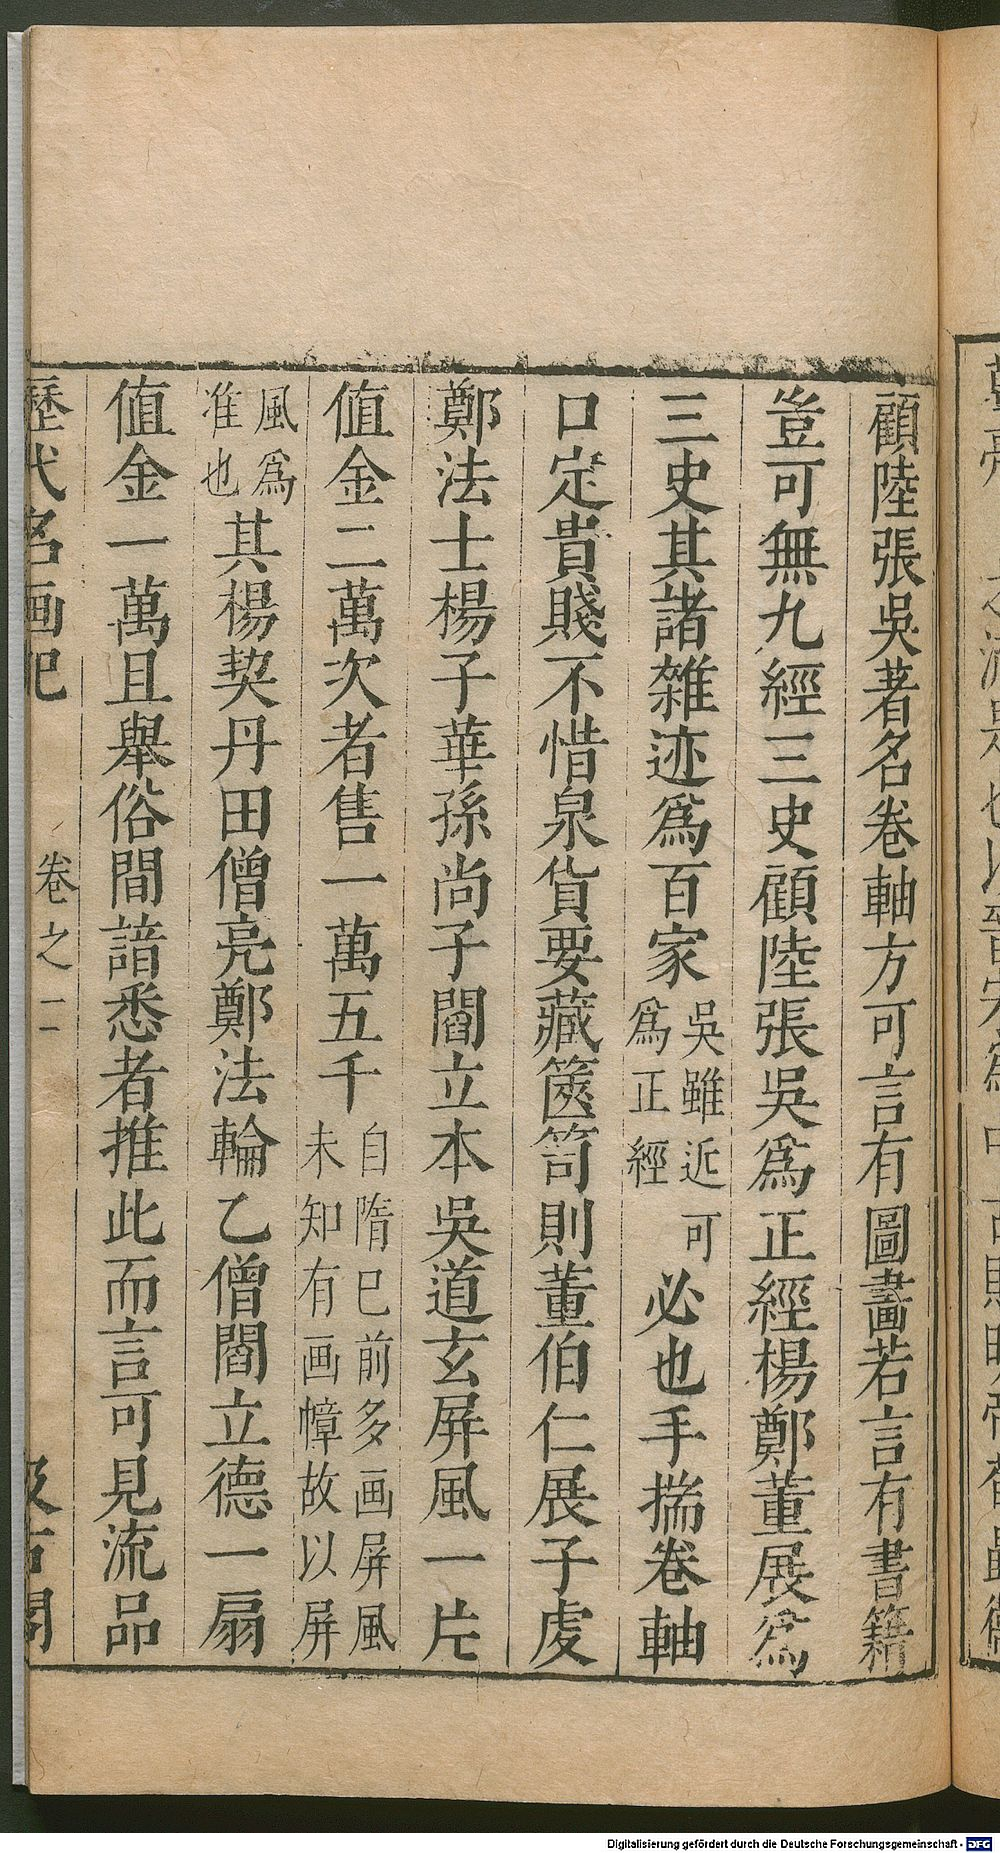 顧陸張吳著名卷軸方可言有圖畫若言有書籍
豈可無九經三史顧陸張吳爲正經楊鄭董展爲
三史其諸雜迹爲百家吳雖近可爲正經必也手揣卷軸
口定貴賤不惜泉貨要藏篋笥則董伯仁展子虔
鄭法士楊子華孫尚子閻立本吳道玄屏風一片
值金二萬次者售一萬五千自隋已前多画屏風未知有画幛故以屏
風爲准也其楊契丹田僧亮鄭法輪乙僧閻立德一扇
值金一萬且舉俗間諳悉者推此而言可見流品
歷代名画記 卷之二 汲古閣
Digitalisierung gefördert durch die Deutsche Forschungsgemeinschaft - DFG